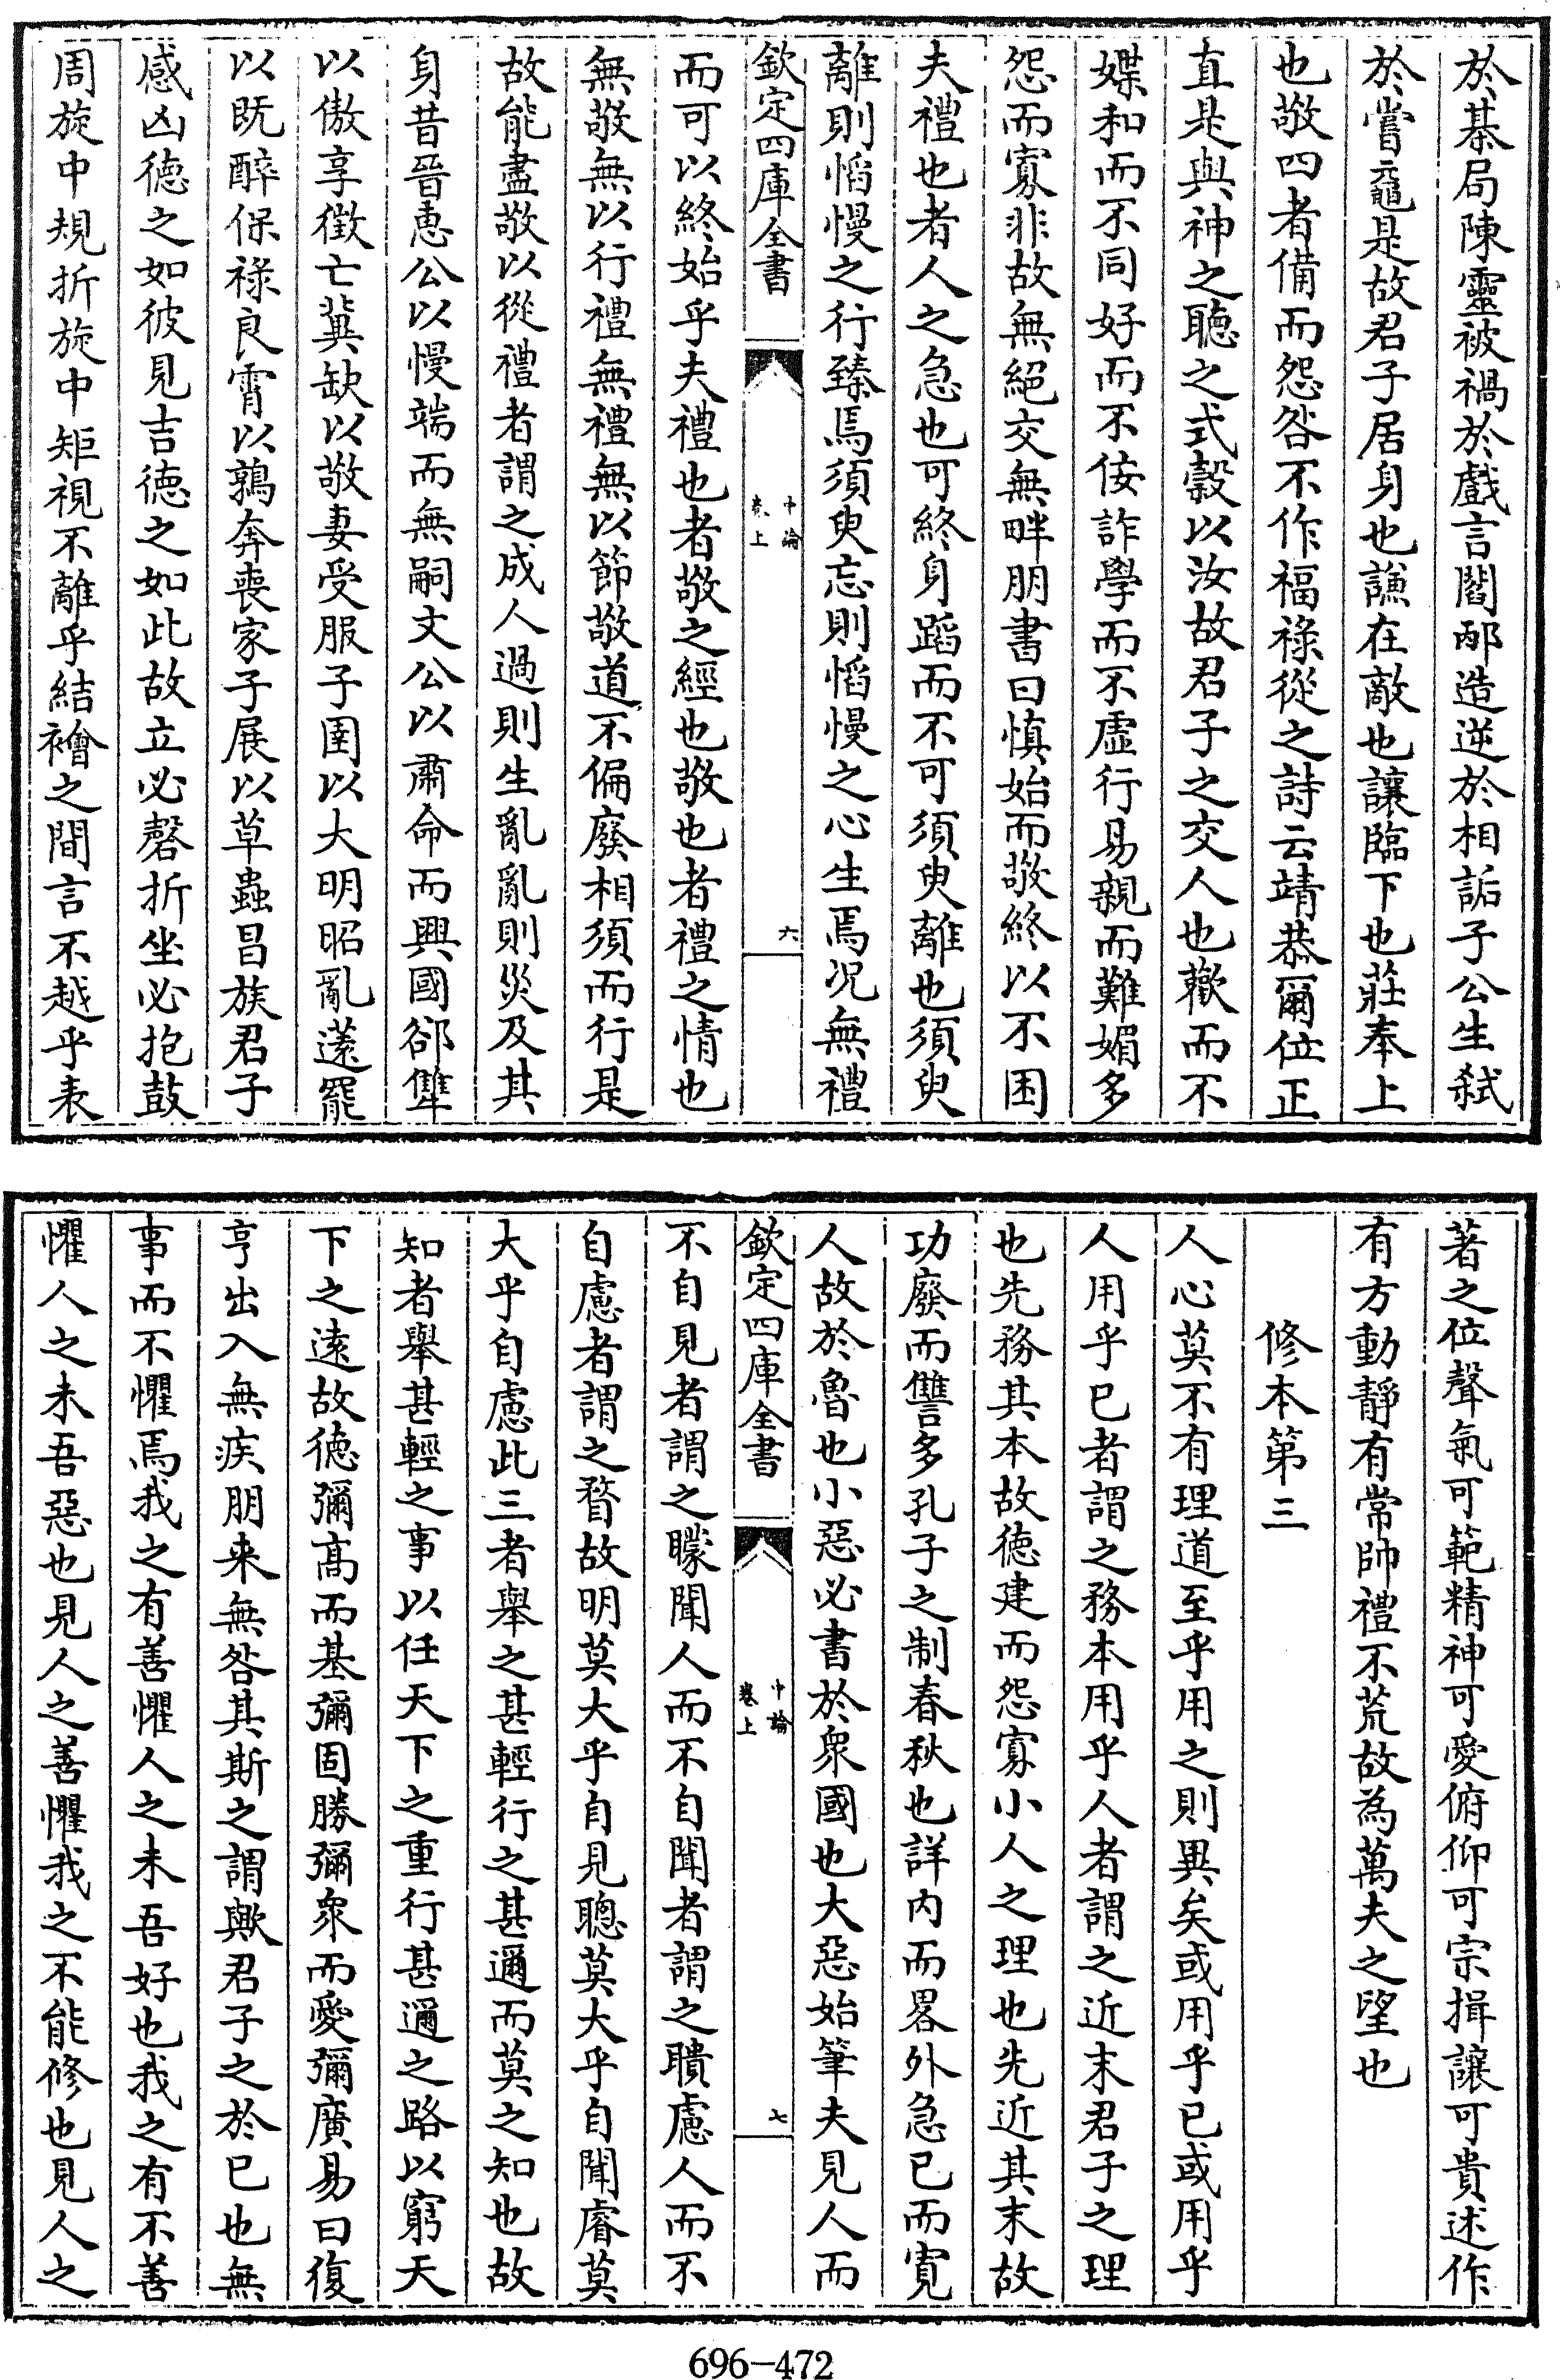 於棊局陳靈被禍於戲言閻邴造逆於相詬子公生弑
於嘗黿是故君子居身也謙在敵也讓臨下也莊奉上
也敬四者備而怨咎不作福祿從之詩云靖恭爾位正
直是與神之聽之式榖以汝故君子之交人也歡而不
媟和而不同好而不佞詐學而不虛行易親而難媚多
怨而寡非故無絕交無畔朋書曰慎始而敬終以不困
夫禮也者人之急也可終身蹈而不可須臾離也須臾
離則慆慢之行臻焉須臾忘則慆慢之心生焉况無禮
欽定四庫全書
中論
卷上
六
而可以終始乎夫禮也者敬之經也敬也者禮之情也
無敬無以行禮無禮無以節敬道不偏廢相須而行是
故能盡敬以從禮者謂之成人過則生亂亂則災及其
身昔晉惠公以慢端而無嗣文公以肅命而興國郤犫
以傲享徵亡冀缺以敬妻受服子圉以大明昭亂薳罷
以既醉保祿良霄以鶉奔喪家子展以草蟲昌族君子
感凶德之如彼見吉德之如此故立必磬折坐必抱鼓
周旋中規折旋中矩視不離乎結襘之間言不越乎表
著之位聲氣可範精神可愛俯仰可宗揖讓可貴述作
有方動靜有常帥禮不荒故為萬夫之望也
修本第三
人心莫不有理道至乎用之則異矣或用乎已或用乎
人用乎已者謂之務本用乎人者謂之近末君子之理
也先務其本故德建而怨寡小人之理也先近其末故
功廢而讐多孔子之制春秋也詳内而畧外急已而寛
人故於魯也小惡必書於衆國也大惡始筆夫見人而
欽定四庫全書
中論
卷上
七
不自見者謂之矇聞人而不自聞者謂之聵慮人而不
自慮者謂之瞀故明莫大乎自見聰莫大乎自聞睿莫
大乎自慮此三者舉之甚輕行之甚邇而莫之知也故
知者舉甚輕之事以任天下之重行甚邇之路以窮天
下之逺故德彌髙而基彌固勝彌衆而愛彌廣易曰復
亨出入無疾朋来無咎其斯之謂歟君子之於已也無
事而不懼焉我之有善懼人之未吾好也我之有不善
懼人之未吾惡也見人之善懼我之不能修也見人之
696-472